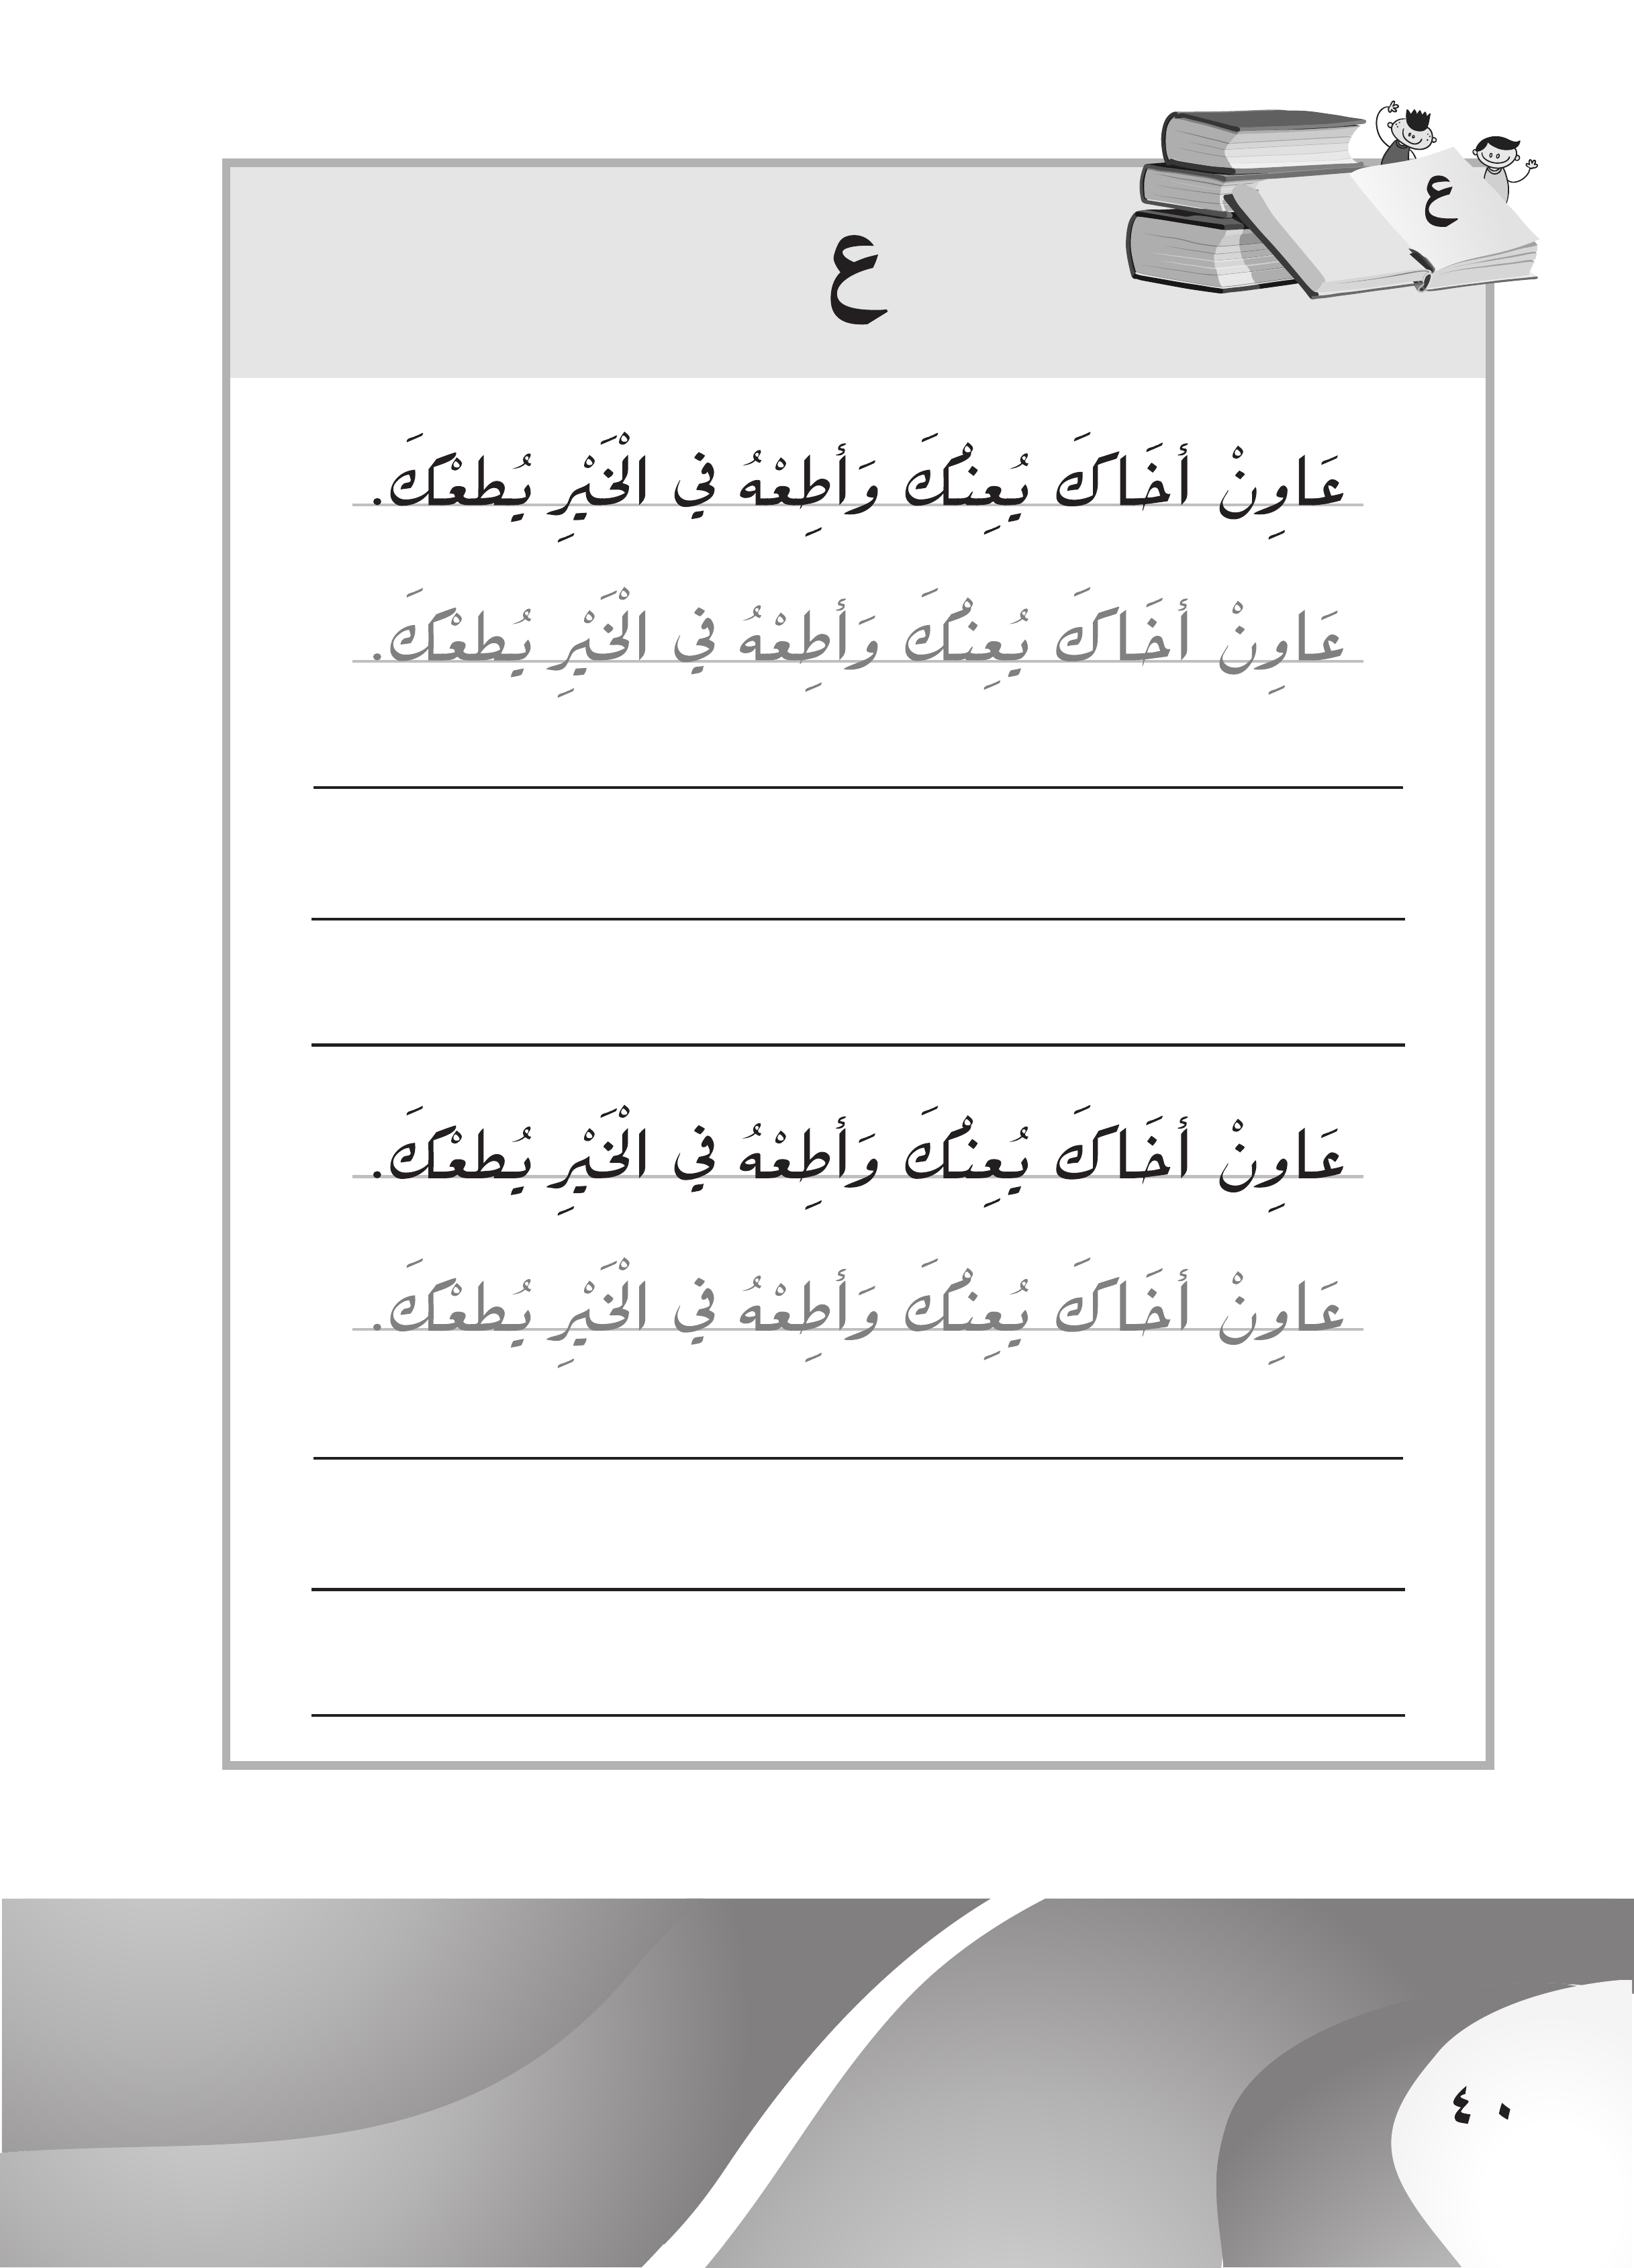 ع
ع
عَاوِنْ أَخَاكَ يُعِنْكَ وَأَطِعْهُ فِي الْخَيْرِ يُطعْكَ.
عَاوِنْ أَخَاكَ يُعِنْكَ وَأَطِعْهُ فِي الْخَيْرِ يُطعْكَ.
عَاوِنْ أَخَاكَ يُعِنْكَ وَأَطِعْهُ فِي الْخَيْرِ يُطعْكَ.
عَاوِنْ أَخَاكَ يُعِنْكَ وَأَطِعْهُ فِي الْخَيْرِ يُطعْكَ.
٤٠